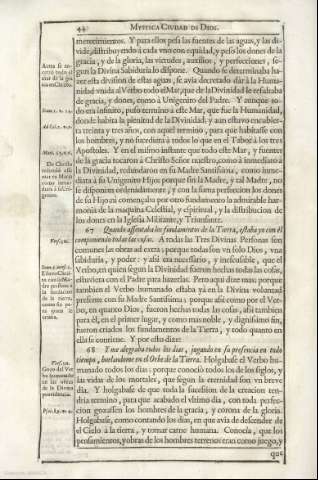 44 MYSTICA CIUDAD DE DIOS.
merecimientos. Y para ellos pesa las fuentes de las aguas, y las di-
vide, distribuyendo à cada vno con equidad, y peso los dones de la
gracia, y de la gloria, las virtudes, auxilios, y perfecciones, se-
gun la Divina Sabiduria lo dispone. Quando se determinaba ha-
zer esta division de estas aguas, se avia decretado dàr à la Huma-
nidad vnida al Verbo todo el Mar, que de la Divinidad le resultaba
de gracia, y dones, como à Unigenito del Padre. Y aunque to-
do era infinito, puso termino à este Mar, que fue la Humanidad,
donde habita la plenitud de la Divinidad; y aun estuvo encubier-
ta treinta y tres años, con aquel termino, para que habitasse con
los hombres, y no sucediera à todos lo que en el Tabor à los tres
Apostoles. Y en el mismo instante que todo este Mar, y fuentes
de la gracia tocaron à Christo Señor nuestro, como à inmediato à
la Divinidad, redundaron en su Madre Santissima, como inme-
diata à su Unigenito Hijo; porque sin la Madre, y tal Madre, no
se disponian ordenadamente, y con la suma perfeccion los dones
de su Hijo; ni començaba por otro fundamento la admirable har-
monia de la maquina Celestial, y espiritual, y la distribucion de
los dones en la Iglesia Militante, y Triunfante.
67 Quando assentaba los fundamentos de la Tierra, estaba yo con èl
componiendo todas las cosas. A todas las Tres Divinas Personas son
comunes las obras ad extra; porque todas son vn solo Dios, vna
sabiduria, y poder: y assi era necessario, è inescusable, que el
Verbo, en quien segun la Divinidad fueron hechas todas las cosas,
estuviera con el Padre para hazerlas. Pero aqui dize mas; porque
tambien el Verbo humanado estaba yà en la Divina voluntad
presente con su Madre Santissima; porque assi como por el Ver-
bo, en quanto Dios, fueron hechas todas las cosas, assi tambien
para èl, en el primer lugar, y como mas noble, y dignissimo fin,
fueron criados los fundamentos de la Tierra, y todo quanto en
ella se contiene. Y por esto dize:
68 Y me alegraba todos los dias, jugando en su presencia en todo
tiempo, burlandome en el Orbe de la Tierra. Holgabase el Verbo hu-
manado todos los dias; porque conociò todos los de los siglos, y
las vidas de los mortales, que segun la eternidad son vn breve
dia. Y holgabase de que toda la sucession de la creacion ten-
dria termino, para que acabado el vltimo dia, con toda perfec-
cion gozassen los hombres de la gracia, y corona de la gloria.
Holgabase, como contando los dias, en que avia de descender de
el Cielo à la tierra, y tomar carne humana. Conocia, que los
pensamientos, y obras de los hombres terrenos eran como juego, y
que